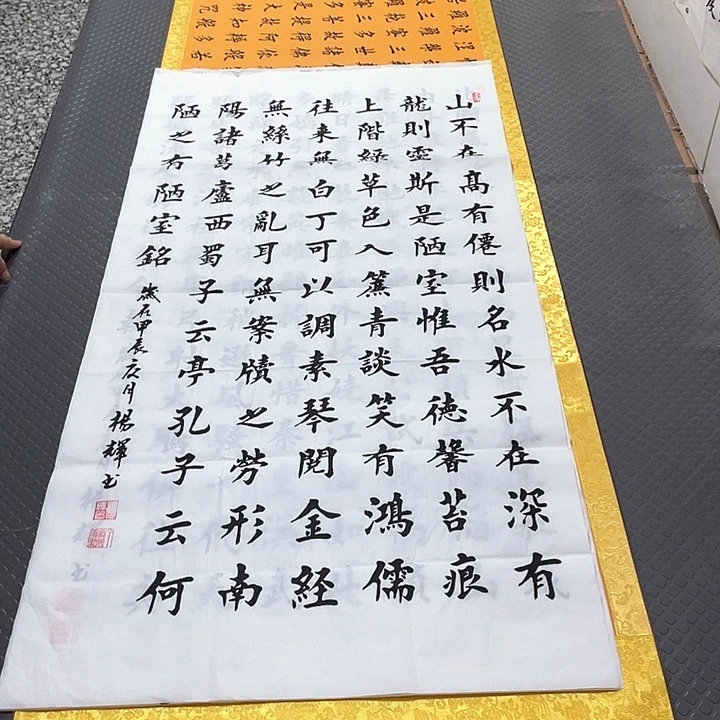 山不在高有僊則名水不在深有
龍則靈斯是陋室惟吾德馨苔痕
上階綠草色入簾青談笑有鴻儒
往来無白丁可以調素琴閱金経
無絲竹之亂耳無案牘之勞形南
陽諸葛廬西蜀子云亭孔子云何
陋之有陋室銘
歲在甲辰夏月楊輝书